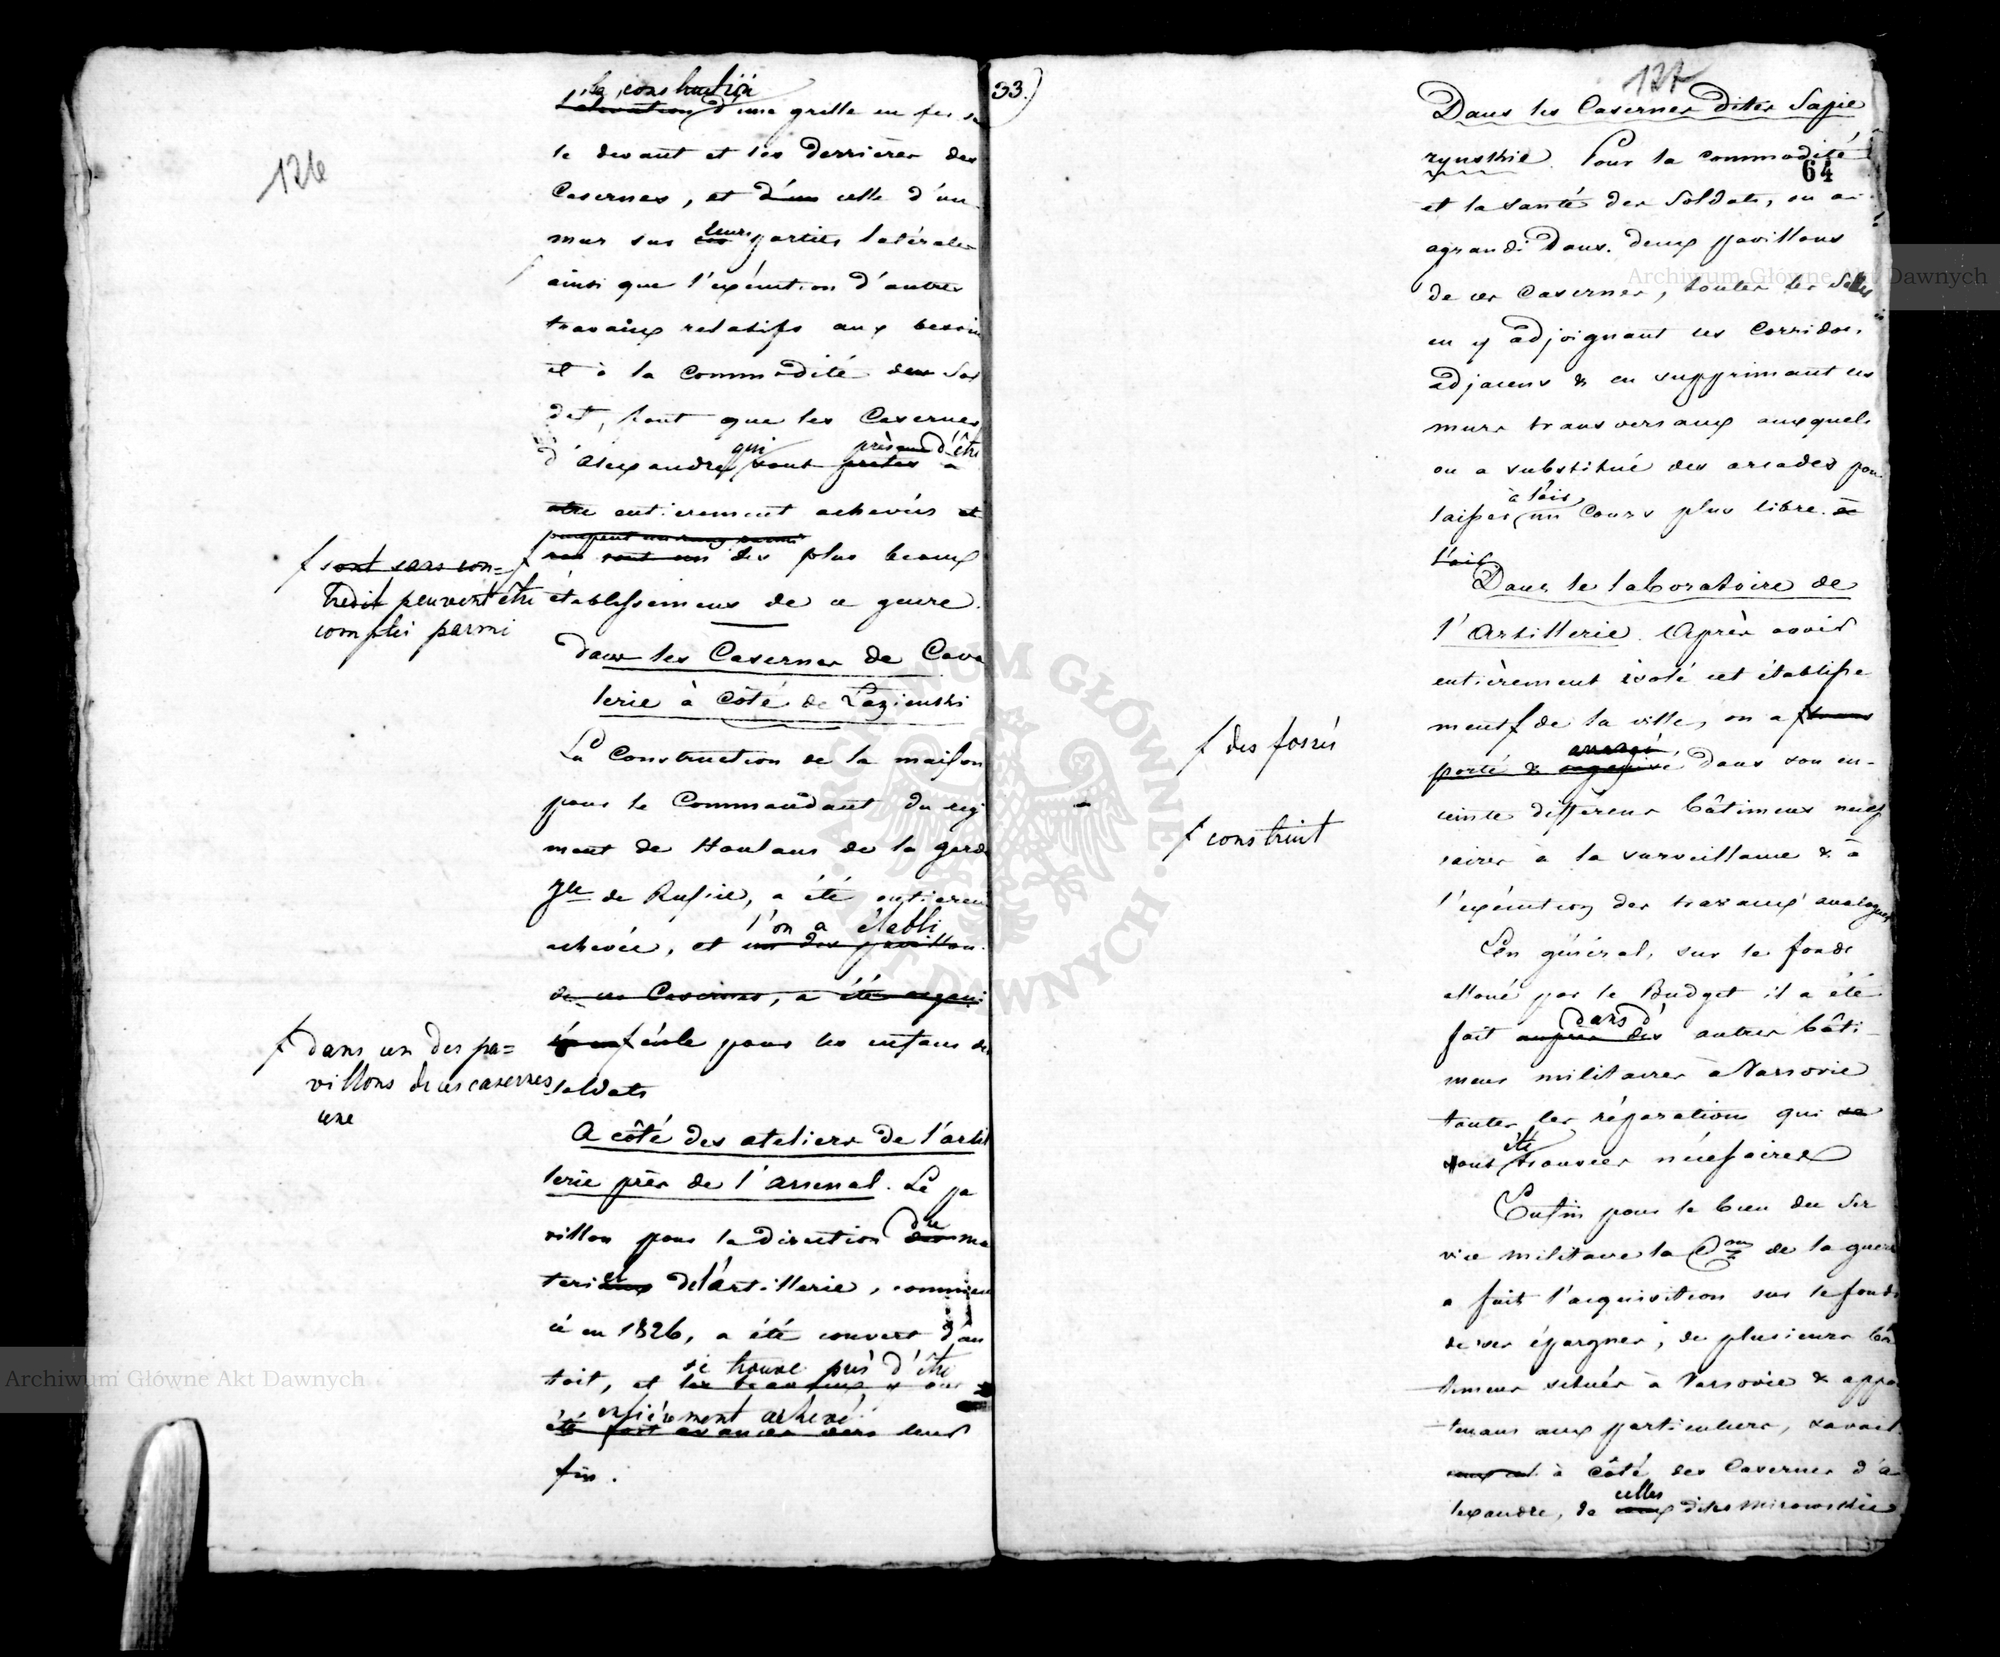 126
la construction
L'élévation d'une grille en fer su
le devant et les derrières des
Casernes, et d'un celle d'un
mur sur ces leurs parties latérales
ainsi que l'exécution d'autres
travaux relatifs aux besoins
et à la commodité des Sol
dat, font que les Casernes
d'Alexandre qui sont pretes a près d'être
etre entierement achevées et
sont un des plus beaux
f sont sans con=
tredit peuvent être
comptés parmi
établissemens de ce genre.
Dans les Casernes de Cava
lerie à Côté de Lazienski
La Construction de la maison
pour le Commandant du régi
ment de Houlans de la garde
Jle de Russie, a été entierem
achevée, et un des pavillon l'on a établi
de ces Casernes, a été organi
f école pour les enfans de
f dans un des pa=
villons de ces casernes
une
soldats
A côté des ateliers de l'artil
lerie près de l'arsenal. Le pa
villon pour la direction des du ma
teriaux el de l'artillerie, commen
cé en 1826, a été couvert d'un
toit, et les travaux se trouve près d'être
entièrement achevé
été fort avancés vers leur
fin.
33.)
127
64
Dans les Casernes dites Sapie
zynskie. Pour la commodité
et la santé des Soldats, on a
agrandi dans deux pavillons
de ces Casernes, toutes les Salles
en y adjoignant les Corridors
adjacens & en supprimant les
murs transversaux auxquels
on a substitué des arcades pour
laisser à l'air un cours plus libre. à
l'air
Dans le laboratoire de
l'Artillerie. Après avoir
entièrement isolé cet établisse
ment f de la ville, on a f trans
f des fossés
porté & organisé dans son en-
f construit
ceinte différens bâtimens néces
saires à la surveillance & à
l'exécution des travaux analogues
En général, sur le fonds
alloué par le Budget il a été
fait auprès des dans d' autres bâti-
mens militaires à Varsovie
toutes les réparations qui se
sont été trouvées nécessaires
Enfin pour le bien du Ser
vice militaire la Con de la guerre
a fait l'acquisition sur le fonds
de ses épargnes, de plusieurs bâ
timens situés à Varsovie & appar
tenans aux particuliers, savoir
à côté des Casernes d'A
lexandre, de ceux celles dites Mirowskie
Archiwum Główne Akt Dawnych
Archiwum Główne Akt Dawnych
ARCHIWUM GŁÓWNE AKT DAWNYCH